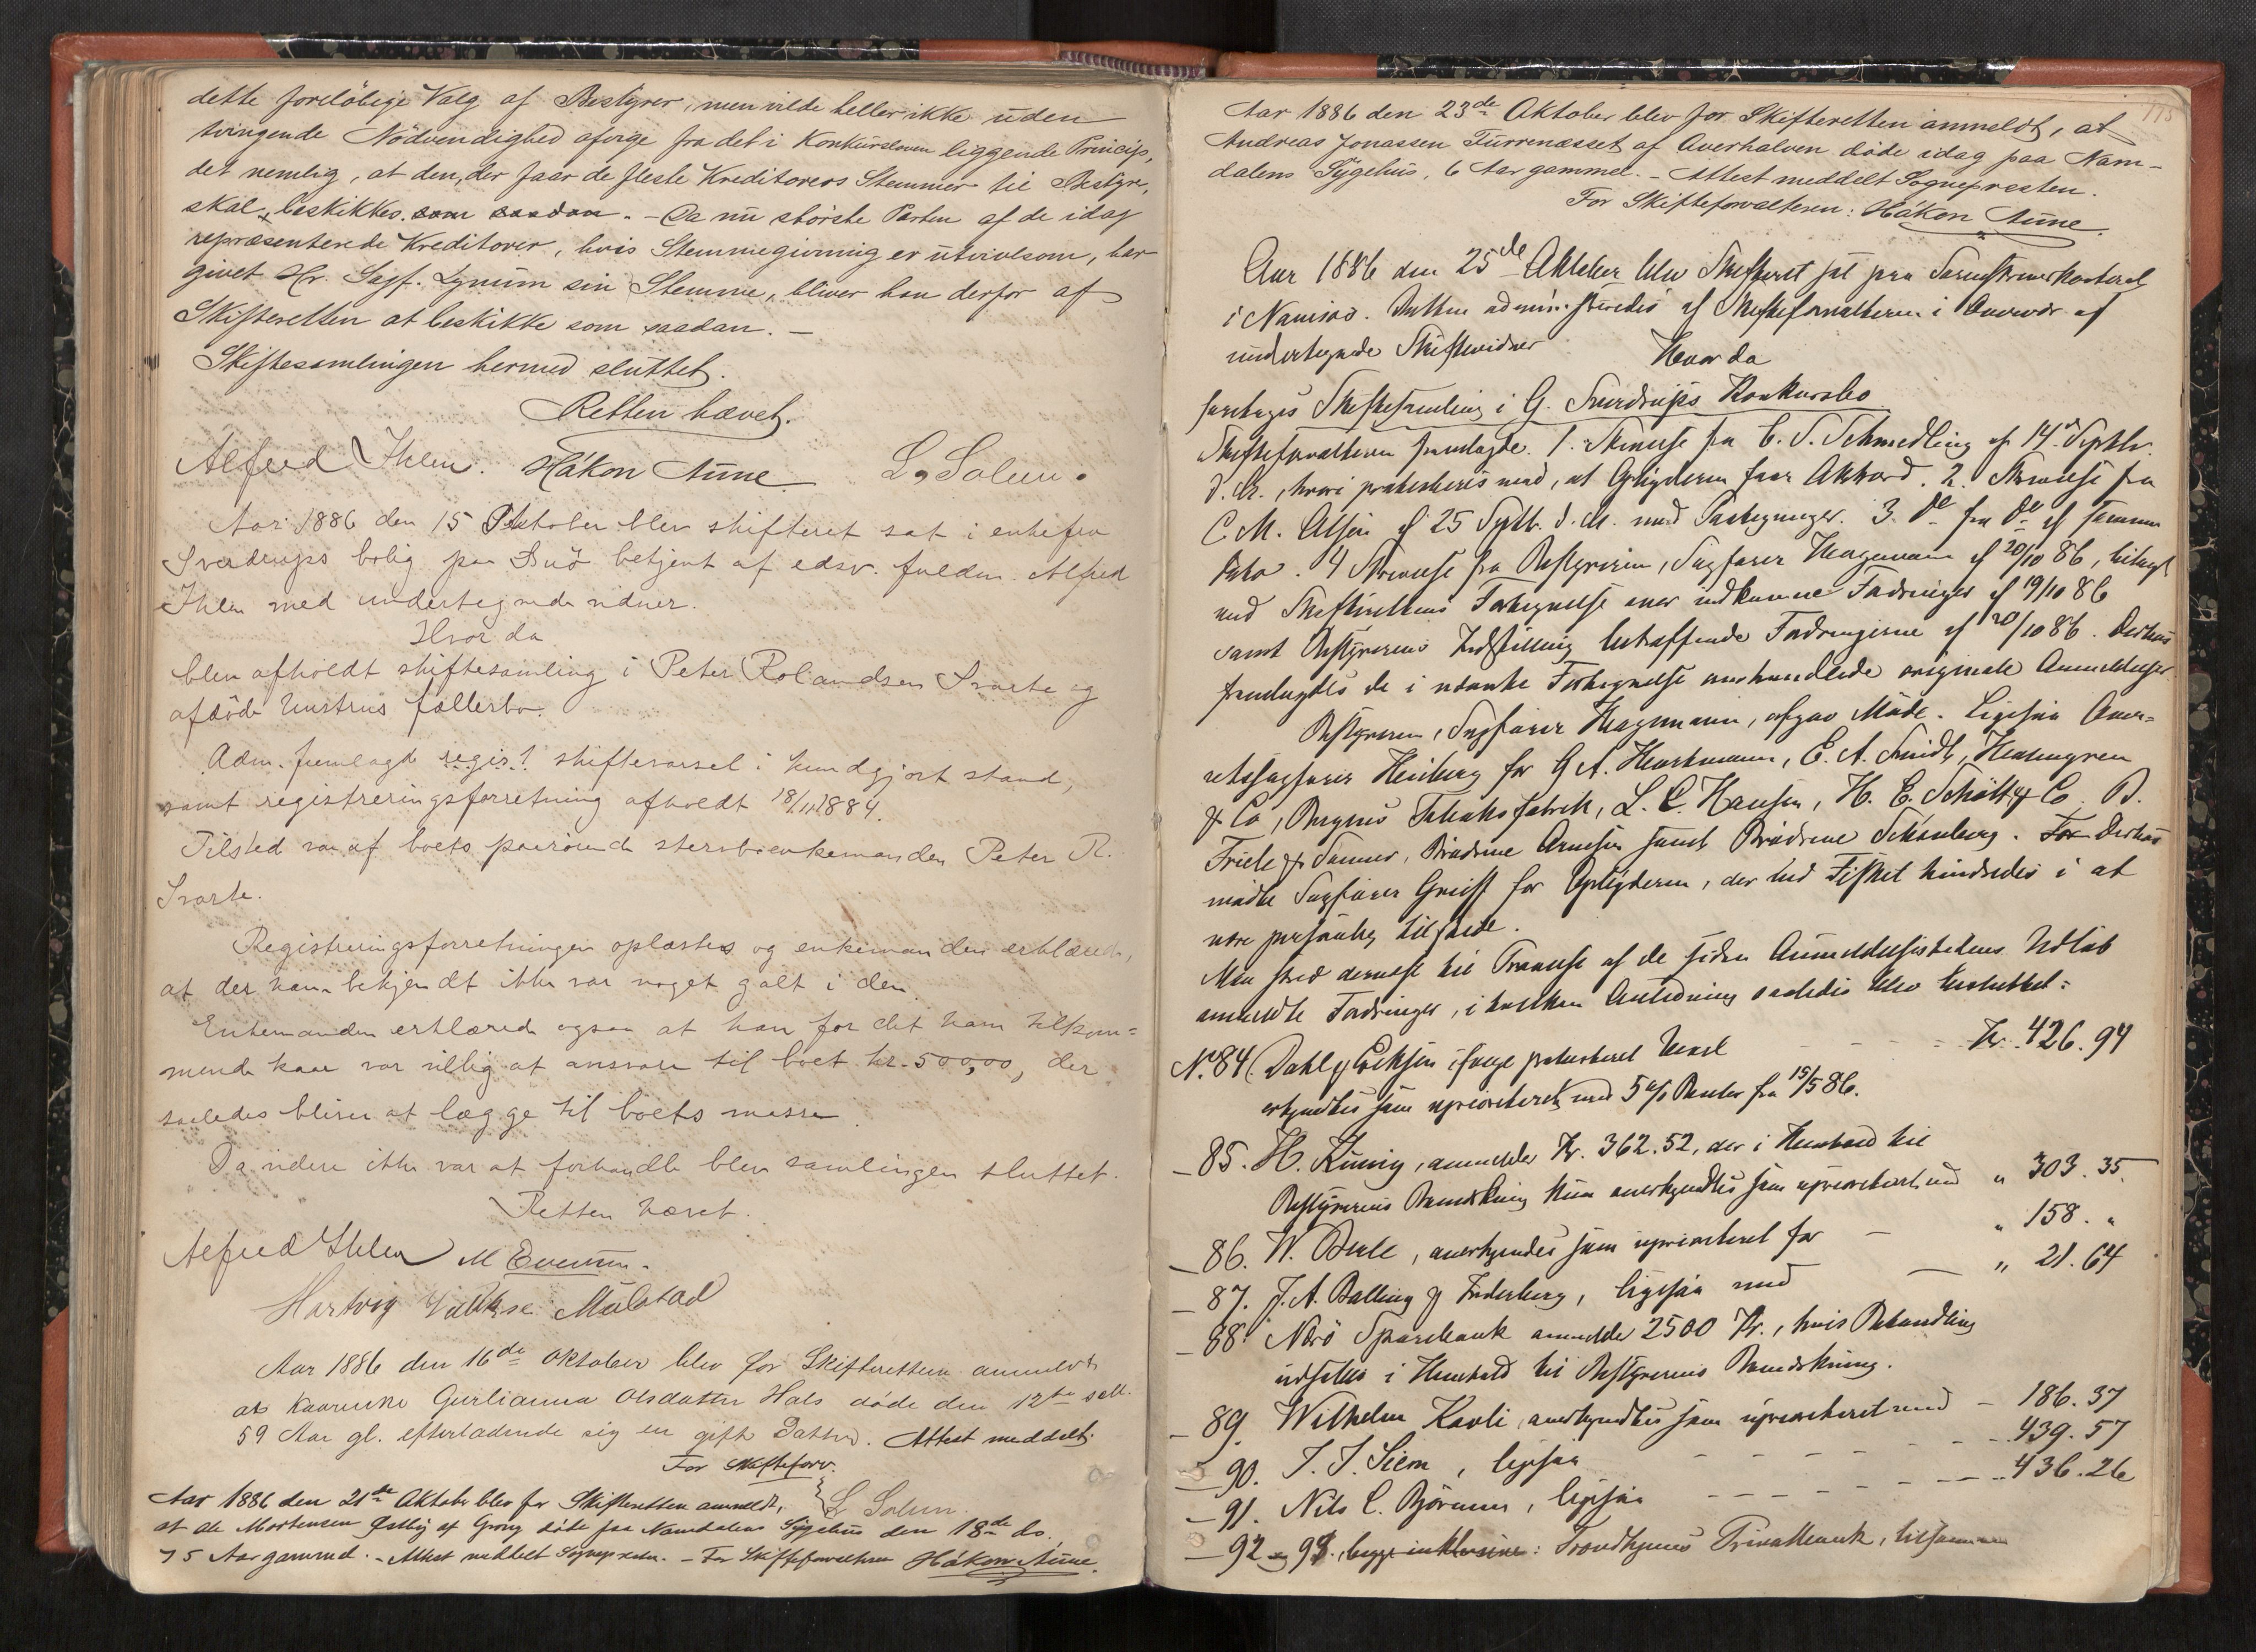 dette foreløbige Valg af Bestyrer, men vilde heller ikke uden
tvingende Nödvendighed afvige fra det i Konkursloven liggende Princip,
det nemlig, at den, der faar de fleste Kreditorers Stemmer til Bestyr,
skal beskikkes som saadan. - Da nu største Parten af de idag
repræsenterede Kreditorer, hvis Stemmegivning er utvivlsom, har
givet Hr. Sagf. Lynum sin Stemme, bliver han derfor af
Skifteretten at beskikke som saadan. -
Skiftesamlingen hermed sluttet.
Retten hævet.
Alfred Ihlen. Håkon Aune. L. Solem.
Aar 1886 den 15 Oktober blev skifteret sat i enkefru
Sverdrups bolig paa betjent af edsv. fuldm. Alfred
Ihlen med undertegnede vidner.
Hvor da
blev afholdt skiftesamling i Peter Rolandsen Svarte og
afdöde hustrus fællesbo.
Adm. fremlagde regis! skiftevarsel i kundgjort stand,
samt registreringsforretning afholdt 18/11 1884.
Tilsted var af boets paarørende stervboenkemanden Peter R.
Svarte.
Registreringsforretningen oplæstes og enkemanden erklærede,
at der ham bekjendt ikke var noget galt i den.
Enkemanden erklærede ogsaa at han for det ham tilkom=
mende kaar var villig at ansvare til boet kr. 500,00, der
saaledes bliver at lægge til boets masse.
Da videre ikke var at forhandle blev samlingen sluttet.
Retten hævet.
Alfred Ihlen M
Hartvig
Aar 1886 den 16de Oktober blev for Skifteretten anmeldt
at Gurlianna Olsdatter Hals döde den 12te
59 Aar gl. efterladende sig en gift Datter. Attest meddelt.
For Skifteforv.
L Solem.
Aar 1886 den 21de Oktober blev for Skifteretten anmeldt,
at Ole Mortensen Østby af Grong döde paa Namdalens Sygehus den 18de ds.
75 Aar gammel. - Attest meddelt Sognepresten. - For Skifteforvalteren Håkon Aune.
115
Aar 1886 den 23de Oktober blev for Skifteretten anmeldt, at
Andreas Jonassen Furrenæsset af Overhalven döde idag paa Nam-
dalens Sygehus, 6 Aar gammel. - Attest meddelt Sognepresten.
For Skifteforvalteren: Håkon Aune.
Aar 1886 den 25de Oktober blev Skifteret sat paa Sorenskriverkontoret
i Namsos. Retten administreredes af Skifteforvalteren i Overvær af
undertegnede Skiftevidner
Hvorda
foretoges Skiftesamling i G. Sverdrups Konkursbo
Skifteforvalteren fremlagde. 1. Skrivelse fra C. S. Schmedling af 14de Septbr.
d. A., hvori protesteres mod, at Opbyderen faar Akkord. 2. Skrivelse fra
C. M. af 25 Septb. d. A. med Paategninger. 3. do fra do af samme
Dato. 4 Skrivelse fra Bestyreren, Sagfører Hagemann af 20/10 86, bilagt
med Skifterettens Fortegnelse over indkomne Fordringer af 19/10 86
samt Bestyrerens Indstilling betræffende Fordringerne af 20/10 86. Derhos
fremlagdes de i nævnte Fortegnelse omhandlede originale Anmeldelser.
Bestyreren, Sagfører Hagemann, afgav Möde. Ligesaa Over=
retssagfører Heiberg for G A. Hartmann, E. A. Smidt,
& Co, Bergens Tobaksfabrik, L. C. Hansen, H. E. Schött & Co, B.
Friele & Sönner, Brödrene Arnesen samt Brödrene Schönberg. For Derhos
mödte Sagfører Greiff for Opbyderen, der ved Fisket hindredes i at
være personlig tilstede.
Man skred dernæst til Prøvelse af de siden Anmeldelsestidens Udløb
anmeldte Fordringer, i hvilken Anledning saaledes blev besluttet:
No. 84. Dahl & ifølge protesteret Vexel - - - Kr. 426.94
erkjendtes som uprioriteret med 5% Renter fra 15/5 86.
- 85. H. König, anmelder Kr. 362.52, der i Henhold til
Bestyrerens Bemærkning kun anerkjendtes som uprioriteret med " 303.35
- 86. W. , anerkjendes som uprioriteret for - " 158. "
- 87. J. A. Balling & , ligesaa med - " 21.64
- 88. Nærö Sparebank anmelder 2500 Kr., hvis Behandling
udsattes i Henhold til Bestyrerens Bemærkning.
- 89. Wilhelm Kavli, anerkjendtes som uprioriteret med - 186.37
- 90. J. J. Siem, ligesaa - - - 439.57
- 91. Nils C. , ligesaa - - - 436.26
- 92 og 93. begge inklusive: Trondhjems Privatbank, tilsammen